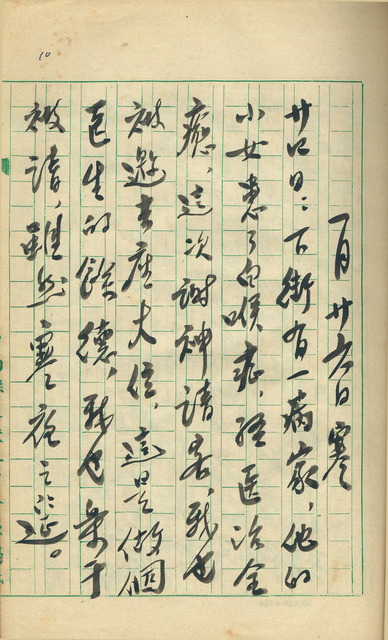 10
一月廿六日寒
廿四日:下街有一病家,他的
小女患了白喉症,經医治全
癒,這次謝神請客,我也
被邀去座大位,這是做個
医生的餘德,我也樂于
被請,雖然寒夜之逆。